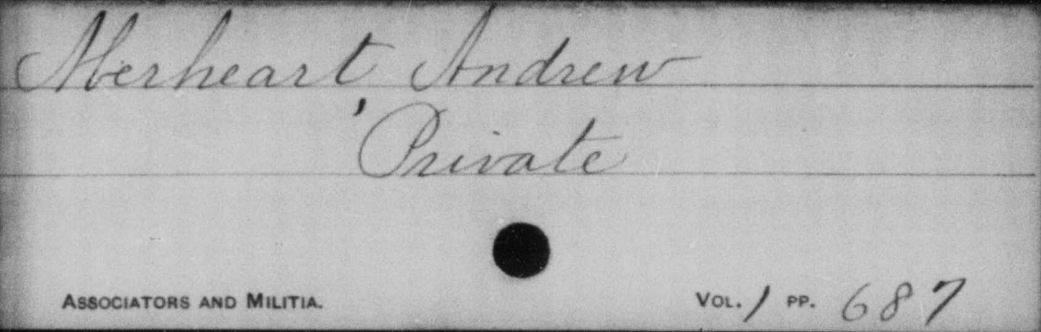 Aberheart, Andrew
Private
ASSOCIATORS AND MILITIA. VOL. 1 PP. 687